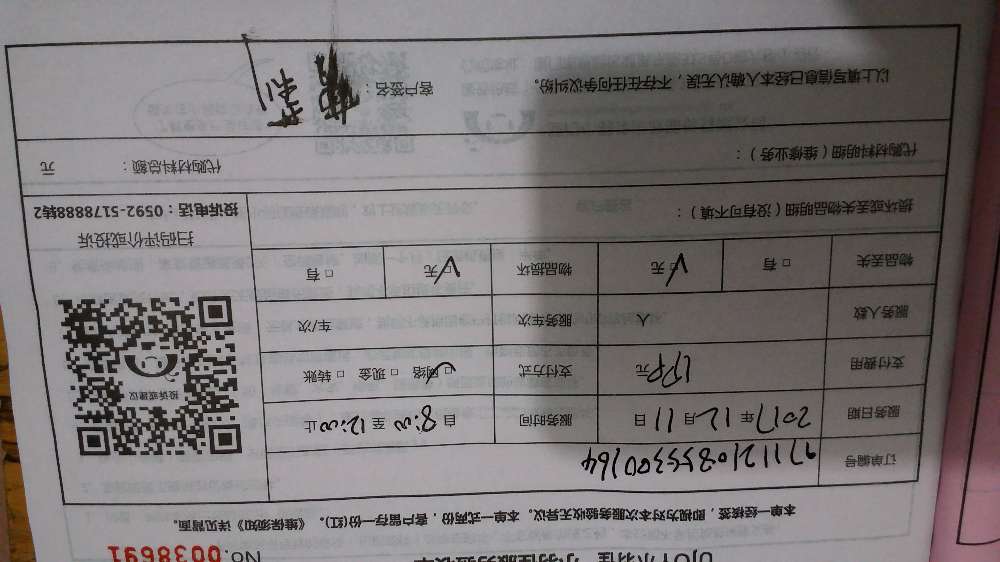 No. 0038691
本单一经核签,即视为对本次服务验收无异议。本单一式两份,客户留存一份(红)。《维保须知》详见背面。
订单编号
服务日期 2017年12月11日 服务时间 自8:00至12:00止
支付费用 元 支付方式 网络 □ 现金 □ 转账
服务人数 人 服务车次 车/次
物品丢失 □ 有 □ 无 物品损坏 □ 无 □ 有
投诉或建议
扫码评价或投诉
投诉电话:0592-5178888转2
损坏或丢失物品明细(没有可不填):
代购材料明细(维修业务): 代购材料总额: 元
以上填写信息已经本人确认无误,不存在任何争议纠纷。 客户签名: